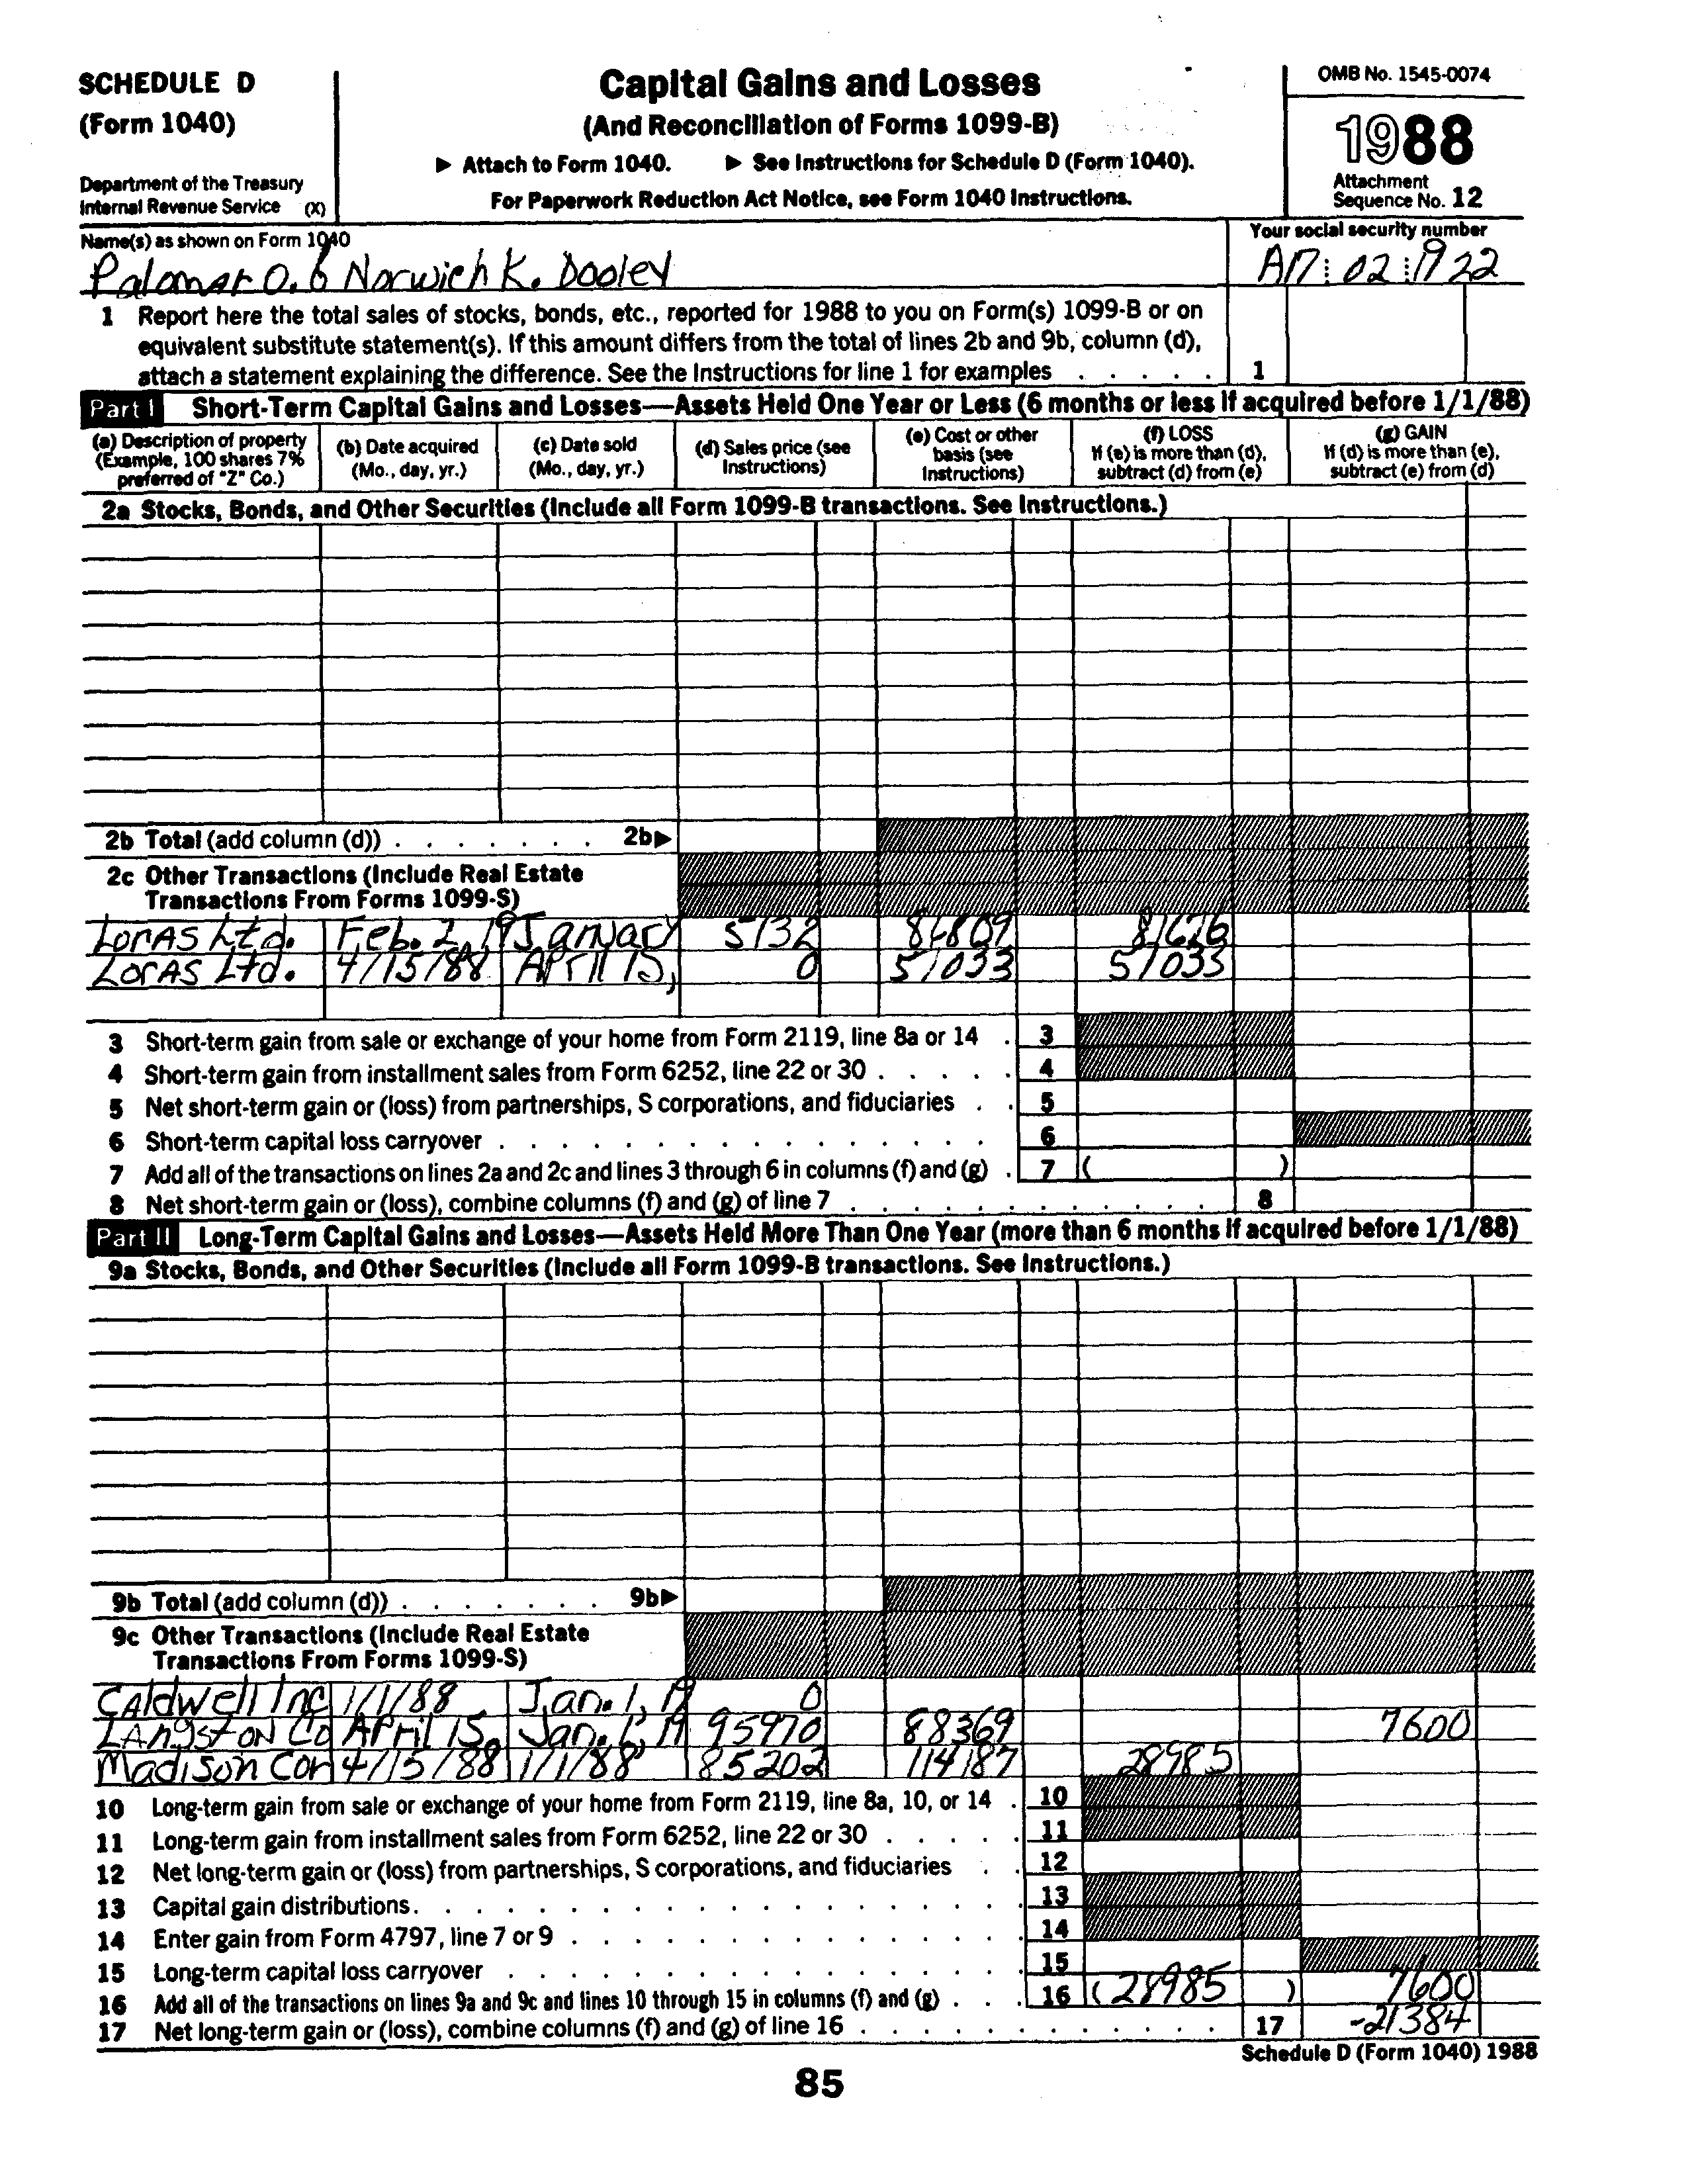 SCHEDULE D
(Form 1040)
Department of the Treasury
Internal Revenue Service (X)
Capital Gains and Losses
(And Reconciliation of Forms 1099-B)
▶ Attach to Form 1040. ▶ See Instructions for Schedule D (Form 1040).
For Paperwork Reduction Act Notice, see Form 1040 Instructions.
OMB No. 1545-0074
1988
Attachment
Sequence No. 12
Name(s) as shown on Form 1040
Palomar O. & Norwich K. Dooley
Your social security number
A17 02 1922
1 Report here the total sales of stocks, bonds, etc., reported for 1988 to you on Form(s) 1099-B or on
equivalent substitute statement(s). If this amount differs from the total of lines 2b and 9b, column (d),
attach a statement explaining the difference. See the Instructions for line 1 for examples . . . . . 1
Part I Short-Term Capital Gains and Losses—Assets Held One Year or Less (6 months or less if acquired before 1/1/88)
(a) Description of property
(Example, 100 shares 7%
preferred of "Z" Co.)
(b) Date acquired
(Mo., day, yr.)
(c) Date sold
(Mo., day, yr.)
(d) Sales price (see
Instructions)
(e) Cost or other
basis (see
Instructions)
(f) LOSS
If (e) is more than (d),
subtract (d) from (e)
(g) GAIN
If (d) is more than (e),
subtract (e) from (d)
2a Stocks, Bonds, and Other Securities (Include all Form 1099-B transactions. See Instructions.)
2b Total (add column (d)) . . . . . . . 2b▶
2c Other Transactions (Include Real Estate
Transactions From Forms 1099-S)
Loras Ltd. Feb. 2, 19 January 5132 86809 81676
Loras Ltd. 4/15/88 April 15, 0 51033 51033
3 Short-term gain from sale or exchange of your home from Form 2119, line 8a or 14 . 3
4 Short-term gain from installment sales from Form 6252, line 22 or 30 . . . . . 4
5 Net short-term gain or (loss) from partnerships, S corporations, and fiduciaries . . 5
6 Short-term capital loss carryover . . . . . . . . . . . . . . . . 6
7 Add all of the transactions on lines 2a and 2c and lines 3 through 6 in columns (f) and (g) . 7 ( )
8 Net short-term gain or (loss), combine columns (f) and (g) of line 7 . . . . . . . . . . . . 8
Part II Long-Term Capital Gains and Losses—Assets Held More Than One Year (more than 6 months if acquired before 1/1/88)
9a Stocks, Bonds, and Other Securities (Include all Form 1099-B transactions. See Instructions.)
9b Total (add column (d)) . . . . . . . 9b▶
9c Other Transactions (Include Real Estate
Transactions From Forms 1099-S)
Caldwell Inc 1/1/88 Jan. 1, 19 0
Langston Co April 15, Jan. 1, 19 95970 88369 7600
Madison Cor 4/15/88 1/1/88 85202 114187 28985
10 Long-term gain from sale or exchange of your home from Form 2119, line 8a, 10, or 14 . 10
11 Long-term gain from installment sales from Form 6252, line 22 or 30 . . . . . 11
12 Net long-term gain or (loss) from partnerships, S corporations, and fiduciaries . . 12
13 Capital gain distributions . . . . . . . . . . . . . . . . . . . 13
14 Enter gain from Form 4797, line 7 or 9 . . . . . . . . . . . . . . 14
15 Long-term capital loss carryover . . . . . . . . . . . . . . . . 15
16 Add all of the transactions on lines 9a and 9c and lines 10 through 15 in columns (f) and (g) . . . 16 (28985 ) 7600
17 Net long-term gain or (loss), combine columns (f) and (g) of line 16 . . . . . . . . . . . . 17 -21384
Schedule D (Form 1040) 1988
85